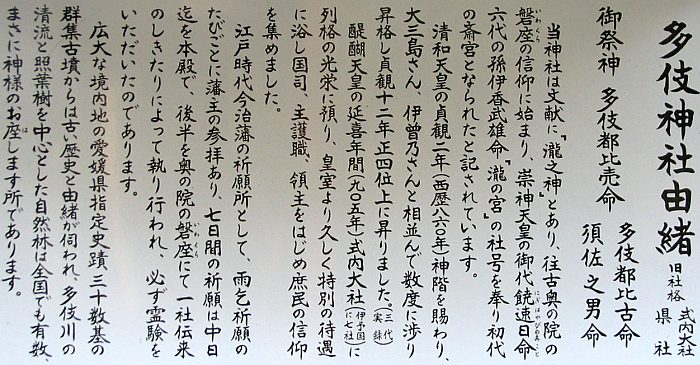 多伎神社由緒 旧社格 式内大社 県社
御祭神 多伎都比売命 多伎都比古命 須佐之男命
当神社は文献に『瀧之神』とあり、往古奥の院の
磐座の信仰に始まり、崇神天皇の御代饒速日命
いわくら
にぎはやびのみこと
六代の孫伊香武雄命『瀧の宮』の社号を奉り初代
の斎宮となられたと記されています。
清和天皇の貞観二年(西歴八六〇年)神階を賜わり、
大三島さん、伊曽乃さんと相並んで数度に渉り
昇格し貞観十二年正四位上に昇りました。(三代実録)
醍醐天皇の延喜年間(九〇五年)式内大社(伊予国に七社)に
列格の光栄に預り、皇室より久しく特別の待遇
に浴し国司、主護職、領主をはじめ庶民の信仰
を集めました。
江戸時代今治藩の祈願所として、雨乞祈願の
たびごとに藩主の参拝あり、七日間の祈願は中日
迄を本殿で、後半を奥の院の磐座にて一社伝来
いわくら
のしきたりによって執り行われ、必ず霊験を
いただいたのであります。
広大な境内地の愛媛県指定史蹟三十数基の
群集古墳からは古い歴史と由緒が伺われ、多伎川の
清流と照葉樹を中心とした自然林は全国でも有数、
まさに神様のお座します所であります。